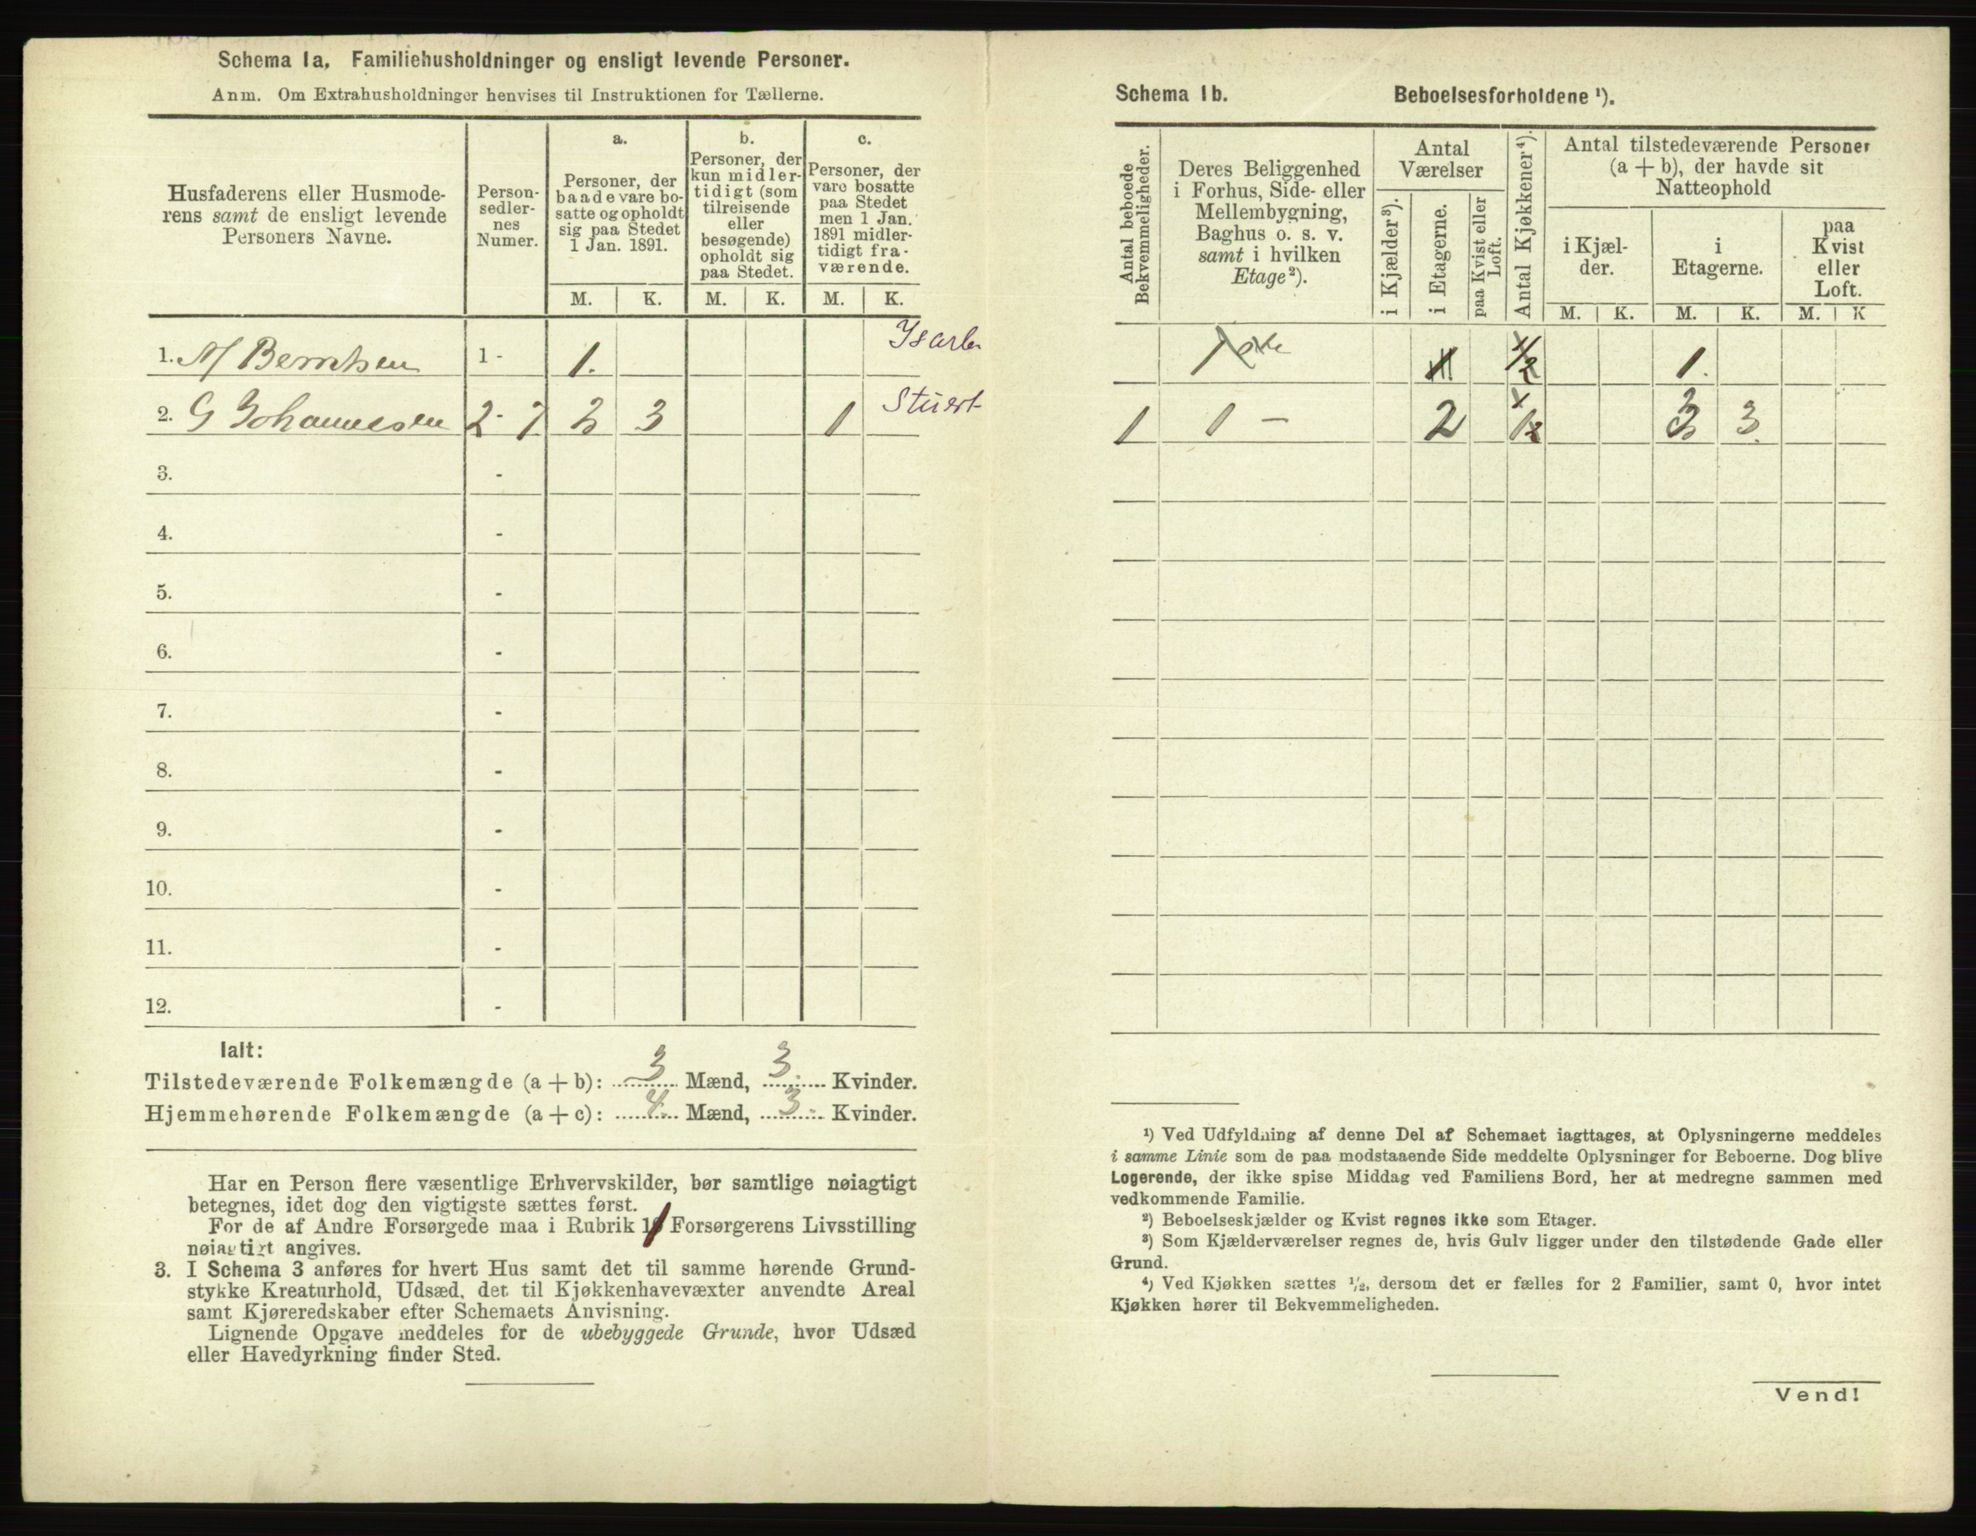 Schema 1a. Familiehusholdninger og ensligt levende Personer.
Anm. Om Extrahusholdninger henvises til Instruktionen for Tællerne.
Husfaderens eller Husmode-
rens samt de ensligt levende
Personers Navne.
Person-
sedler-
nes
Numer.
a.
Personer, der
baade vare bo-
satte og opholdt
sig paa Stedet
1 Jan. 1891.
b.
Personer, der
kun midler-
tidigt (som
tilreisende
eller
besøgende)
opholdt sig
paa Stedet.
c.
Personer, der
vare bosatte
paa Stedet
men 1 Jan.
1891 midler-
tidigt fra-
værende.
M. K. M. K. M. K.
1. Bernhsen 1 - 1.
2. G Johannesen 2 - 7 2 3 1 Stuert
3. -
4. -
5. -
6. -
7. -
8. -
9. -
10. -
11. -
12. -
Ialt:
Tilstedeværende Folkemængde (a + b): 3 Mænd, 3 Kvinder.
Hjemmehørende Folkemængde (a + c): 4 Mænd, 3 Kvinder.
Har en Person flere væsentlige Erhvervskilder, bør samtlige nøiagtigt
betegnes, idet dog den vigtigste sættes først.
For de af Andre Forsørgede maa i Rubrik Forsørgerens Livsstilling
nøiagtigt angives.
3. I Schema 3 anføres for hvert Hus samt det til samme hørende Grund-
stykke Kreaturhold, Udsæd, det til Kjøkkenhavevæxter anvendte Areal
samt Kjøreredskaber efter Schemaets Anvisning.
Lignende Opgave meddeles for de ubebyggede Grunde, hvor Udsæd
eller Havedyrkning finder Sted.
Schema 1b. Beboelsesforholdene ¹).
Antal beboede
Bekvemmeligheder.
Deres Beliggenhed
i Forhus, Side- eller
Mellembygning,
Baghus o. s. v.
samt i hvilken
Etage²).
Antal
Værelser
i Kjælder³).
i Etagerne.
paa Kvist eller
Loft.
Antal Kjøkkener⁴).
Antal tilstedeværende Personer
(a + b), der havde sit
Natteophold
i Kjæl-
der.
i
Etagerne.
paa
Kvist
eller
Loft.
M. K. M. K. M. K
1 1.
1 1 - 2 3 3
¹) Ved Udfyldning af denne Del af Schemaet iagttages, at Oplysningerne meddeles
i samme Linie som de paa modstaaende Side meddelte Oplysninger for Beboerne. Dog blive
Logerende, der ikke spise Middag ved Familiens Bord, her at medregne sammen med
vedkommende Familie.
²) Beboelseskjælder og Kvist regnes ikke som Etager.
³) Som Kjælderværelser regnes de, hvis Gulv ligger under den tilstødende Gade eller
Grund.
⁴) Ved Kjøkken sættes ¹/₂, dersom det er fælles for 2 Familier, samt 0, hvor intet
Kjøkken hører til Bekvemmeligheden.
Vend!